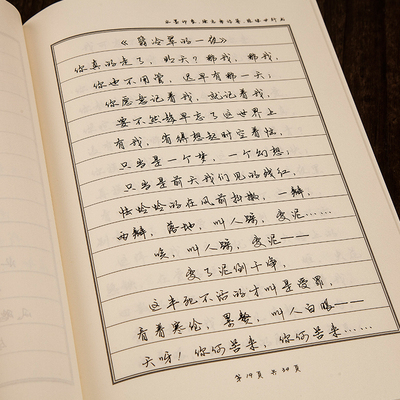 《翡冷翠的一夜》
你真的走了，明天？那我，那我，
你也不用管，迟早有那一天；
你愿意记着我，就记着我，
要不然趁早忘了这世界上
有我，省得想起时空着恼，
只当是一个梦，一个幻想；
只当是前天我们见的残红，
怯怜怜的在风前抖擞，一瓣，
两瓣，落地，叫人踩，变泥……
唉，叫人踩，变泥——
变了泥倒干净，
这半死不活的才叫是受罪，
看着寒伧，累赘，叫人白眼——
天呀！你何苦来，你何苦来……
第19页 共50页